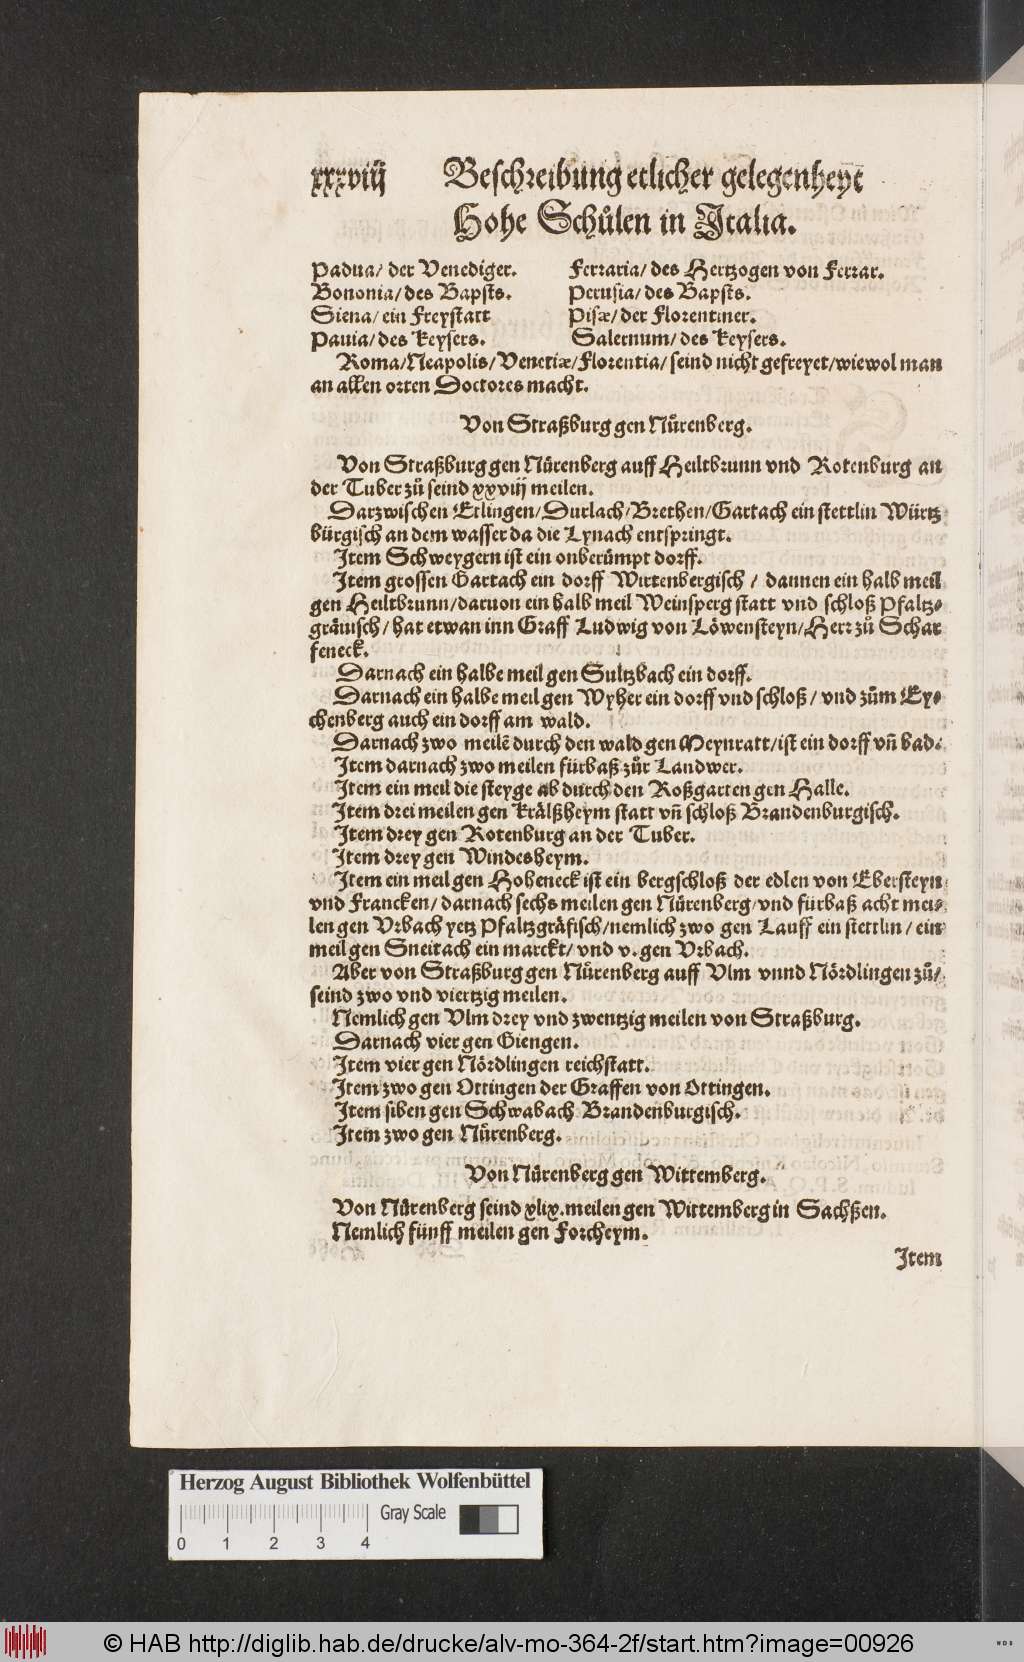 xxxviij Beschreibung etlicher gelegenheyt
Hohe Schůlen in Italia.
Padua/ der Venediger. Ferraria/ des Hertzogen von Ferrar.
Bononia/ des Bapsts. Perusia/ des Bapsts.
Siena/ ein Freystatt Pisæ/ der Florentiner.
Pauia/ des Keysers. Salernum/ des Keysers.
Roma/ Neapolis/ Venetiæ/ Florentia/ seind nicht gefreyet/ wiewol man
an allen orten Doctores macht.
Von Straßburg gen Nůrenberg.
Von Straßburg gen Nůrenberg auff Heiltbrunn vnd Rotenburg an
der Tuber zů seind xxviij meilen.
Darzwischen Etlingen/ Durlach/ Brethen/ Gartach ein stettlin Würtz
bürgisch an dem wasser da die Lynach entspringt.
Item Schweygern ist ein onberůmpt dorff.
Item grossen Gartach ein dorff Wirtenbergisch / dannen ein halb meil
gen Heiltbrunn/ daruon ein halb meil Weinsperg statt vnd schloß Pfaltz⸗
gräuisch/ hat etwan inn Graff Ludwig von Löwensteyn/ Herr zů Schar
feneck.
Darnach ein halbe meil gen Sultzbach ein dorff.
Darnach ein halbe meil gen Wyher ein dorff vnd schloß/ vnd zům Ey⸗
chenberg auch ein dorff am wald.
Darnach zwo meilē durch den wald gen Meynratt/ ist ein dorff vñ bad.
Item darnach zwo meilen fürbaß zůr Landwer.
Item ein meil die steyge ab durch den Roßgarten gen Halle.
Item drei meilen gen Krälßheym statt vñ schloß Brandenburgisch.
Item drey gen Rotenburg an der Tuber.
Item drey gen Windesheym.
Item ein meil gen Hoheneck ist ein bergschloß der edlen von Ebersteyn
vnd Francken/ darnach sechs meilen gen Nůrenberg/ vnd fürbaß acht mei⸗
len gen Vrbach yetz Pfaltzgräfisch/ nemlich zwo gen Lauff ein stettlin/ ein
meil gen Sneitach ein marckt/ vnd v. gen Vrbach.
Aber von Straßburg gen Nůrenberg auff Vlm vnnd Nördlingen zů/
seind zwo vnd viertzig meilen.
Nemlich gen Vlm drey vnd zwentzig meilen von Straßburg.
Darnach vier gen Giengen.
Item vier gen Nördlingen reichstatt.
Item zwo gen Ottingen der Graffen von Ottingen.
Item siben gen Schwabach Brandenburgisch.
Item zwo gen Nůrenberg.
Von Nůrenberg gen Wittemberg.
Von Nůrenberg seind xlix. meilen gen Wittemberg in Sachßen.
Nemlich fünff meilen gen Forcheym.
Item
Herzog August Bibliothek Wolfenbüttel
Gray Scale
0 1 2 3 4
© HAB http://diglib.hab.de/drucke/alv-mo-364-2f/start.htm?image=00926